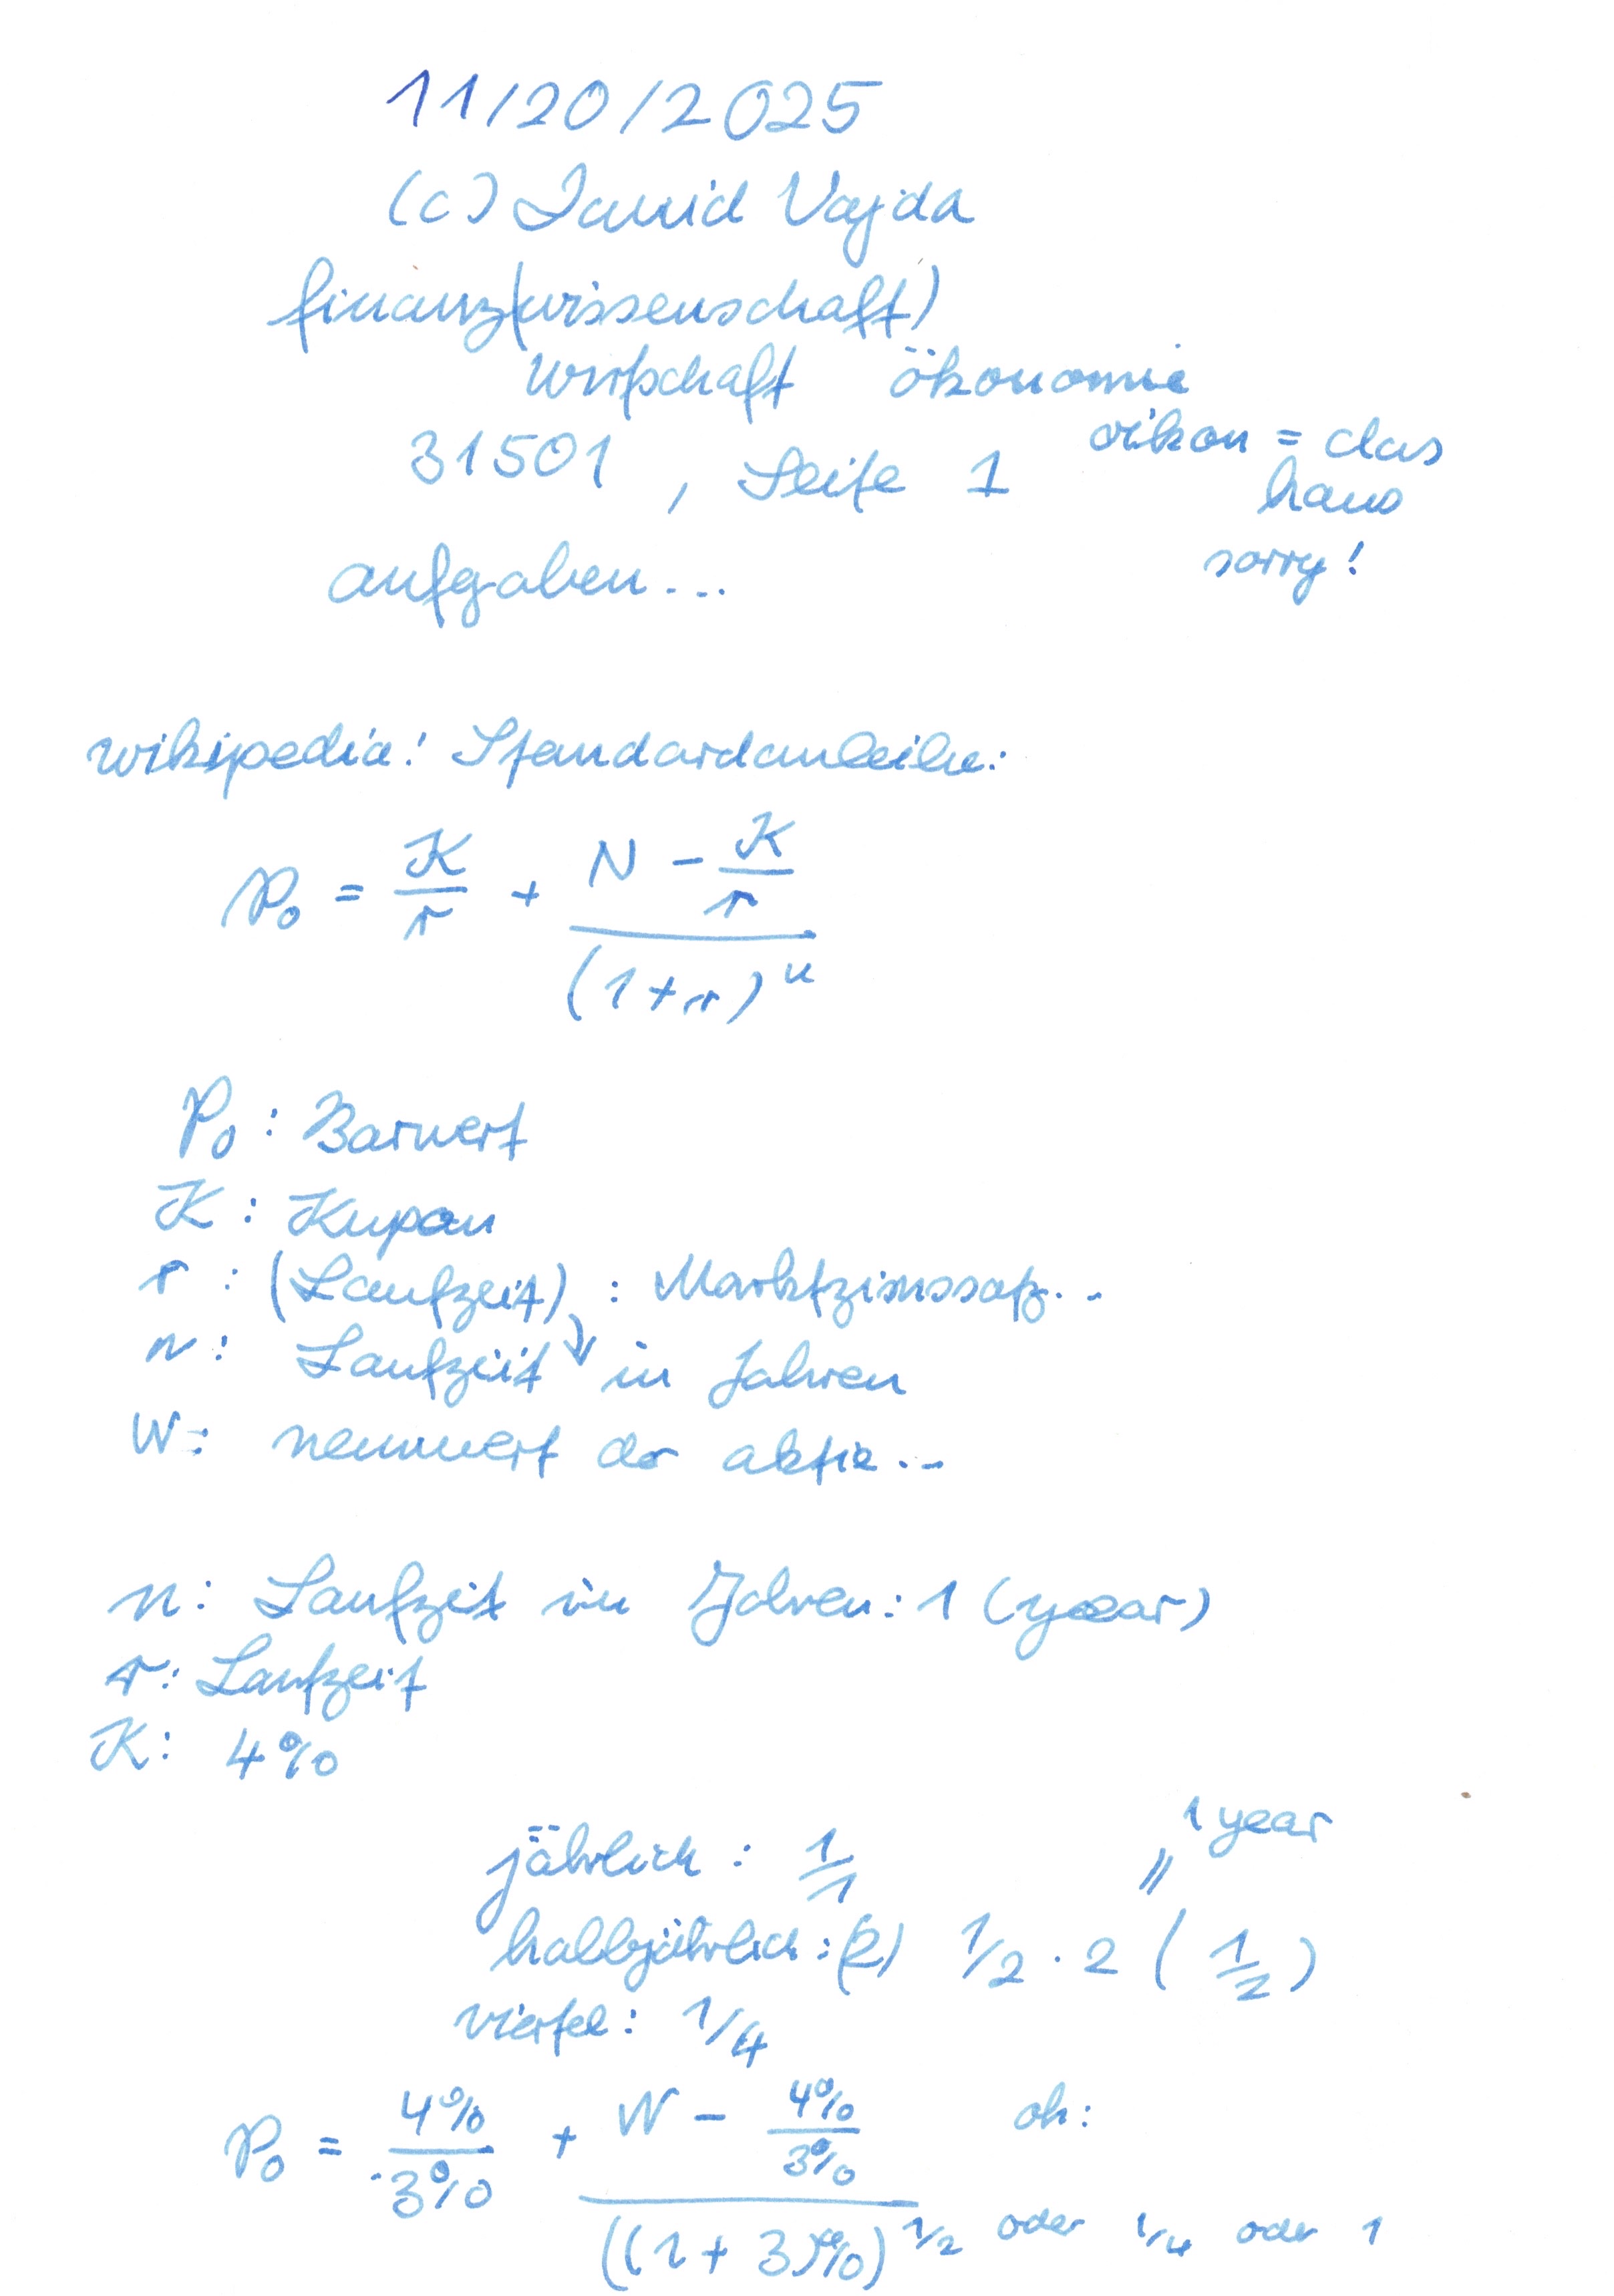 11/20/2025
(c) David Vajda
finanz(wissenschaft)
wirtschaft ökonomie
oikon = das
31501 , Seite 1
haus
sorry!
aufgaben...
wikipedia: Standardanleihe:
P₀ = K/r + (N - K/r)/(1+r)ⁿ
P₀ : Barwert
K : Kupon
r : (Laufzeit) : Marktzinssatz..
n : Laufzeit in Jahren
N : nennwert der aktie..
n : Laufzeit in Jahren: 1 (year)
r : Laufzeit
K : 4%
1 year
jährlich : 1/1 "
halbjährlich : (2) 1/2 · 2 (1/2)
viertel : 1/4
P₀ = 4%/3% + (N - 4%/3%)/((1+3)%)^1/2 oder 1/4 oder 1
oh: